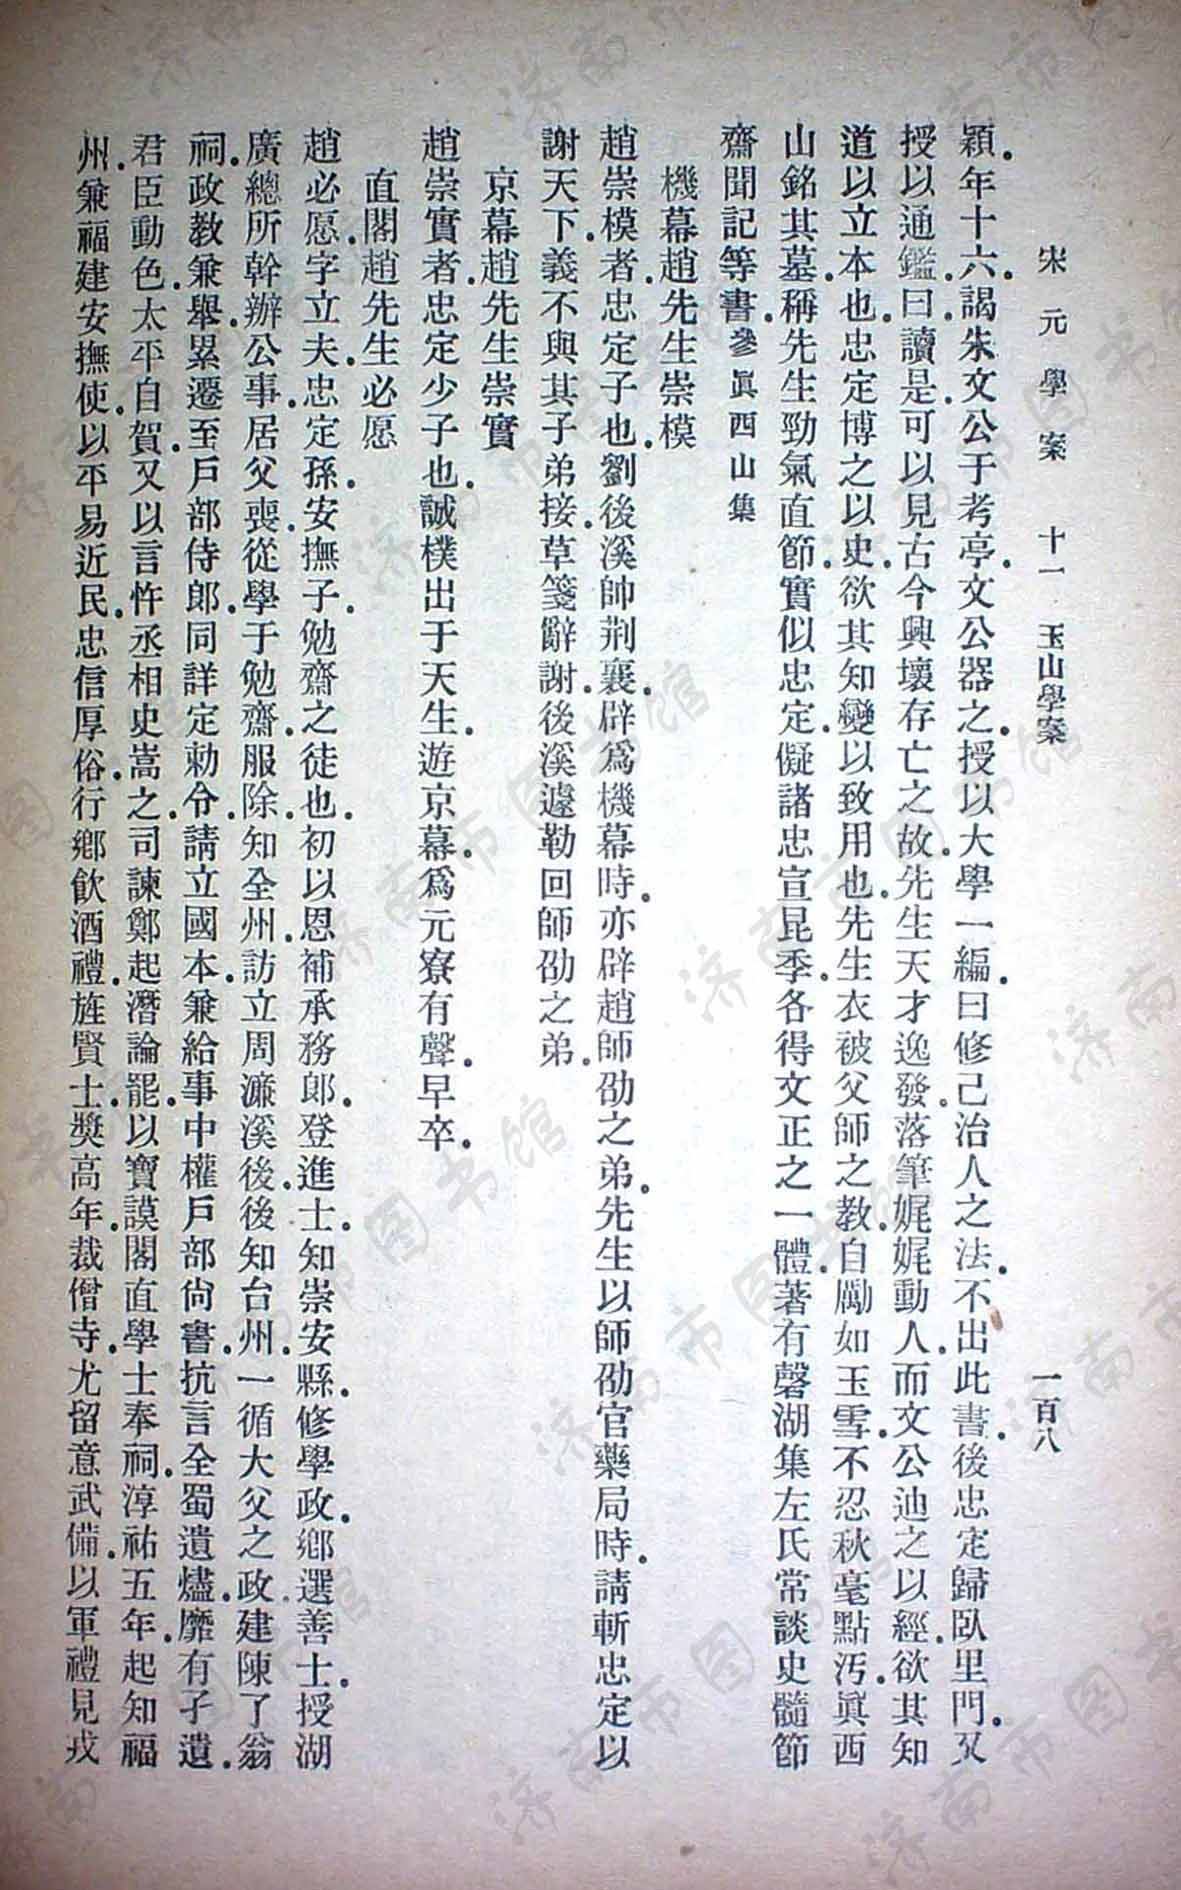 宋元學案 十一 玉山學案 一百八
穎．年十六．謁朱文公于考亭．文公器之．授以大學一編．曰修己治人之法．不出此書．後忠定歸臥里門．又
授以通鑑．曰．讀是．可以見古今興壞存亡之故．先生天才逸發．落筆娓娓動人．而文公迪之以經．欲其知
道以立本也．忠定博之以史．欲其知變以致用也．先生衣被父師之教．自勵如玉雪．不忍秋毫點汚．眞西
山銘其墓．稱先生勁氣直節．實似忠定．儗諸忠宣昆季．各得文正之一體．著有磬湖集左氏常談史髓節
齋聞記等書．參眞西山集
機幕趙先生崇模
趙崇模者．忠定子也．劉後溪帥荆襄．辟爲機幕時．亦辟趙師劭之弟．先生以師劭官藥局時．請斬忠定以
謝天下．義不與其子弟接．草箋辭謝．後溪遽勒回師劭之弟．
京幕趙先生崇實
趙崇實者．忠定少子也．誠樸出于天生．遊京幕．爲元寮有聲．早卒．
直閣趙先生必愿
趙必愿．字立夫．忠定孫．安撫子．勉齋之徒也．初以恩補承務郎．登進士．知崇安縣．修學政．鄉選善士．授湖
廣總所幹辦公事．居父喪．從學于勉齋．服除．知全州．訪立周濂溪後．後知台州．一循大父之政．建陳了翁
祠．政教兼舉．累遷至戶部侍郎．同詳定勅令．請立國本．兼給事中．權戶部尙書．抗言全蜀遺燼．靡有孑遺．
君臣動色．太平自賀．又以言忤丞相史嵩之．司諫鄭起潛論罷．以寶謨閣直學士奉祠．淳祐五年．起知福
州．兼福建安撫使．以平易近民．忠信厚俗．行鄉飲酒禮．旌賢士．獎高年．裁僧寺．尤留意武備．以軍禮見戎
济南市图书馆